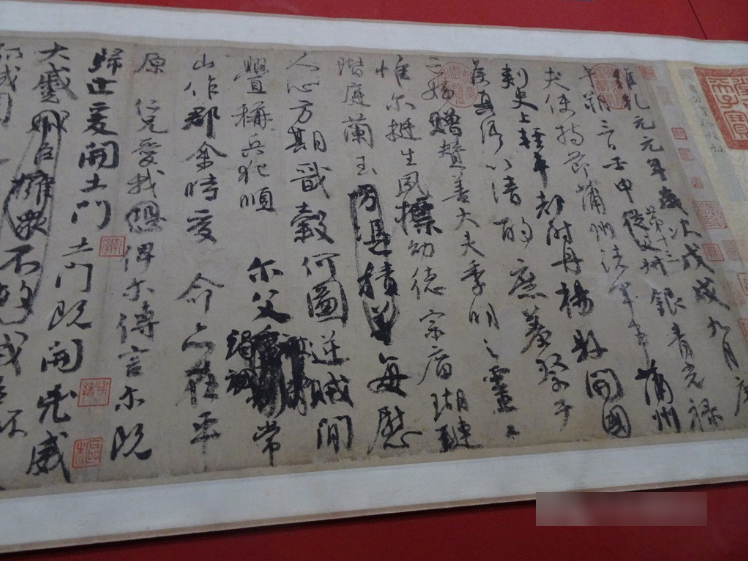 維乾元元年歲次戊戌九月庚
午朔三日壬申第十三從父叔銀青光祿
夫使持節蒲州諸軍事蒲州
刺史上輕車都尉丹楊縣開國
侯真卿以清酌庶羞祭于
亡姪贈贊善大夫季明之靈曰
惟尔挺生夙標幼德宗廟瑚璉
階庭蘭玉方憑積善每慰
人心方期戩穀何圖逆賊閒
釁稱兵犯順尔父竭誠常
山作郡余時受命亦在平
原仁兄愛我恐俾尔傳言尔既
歸止爰開土門土門既開凶威
大蹙賊臣擁衆不救